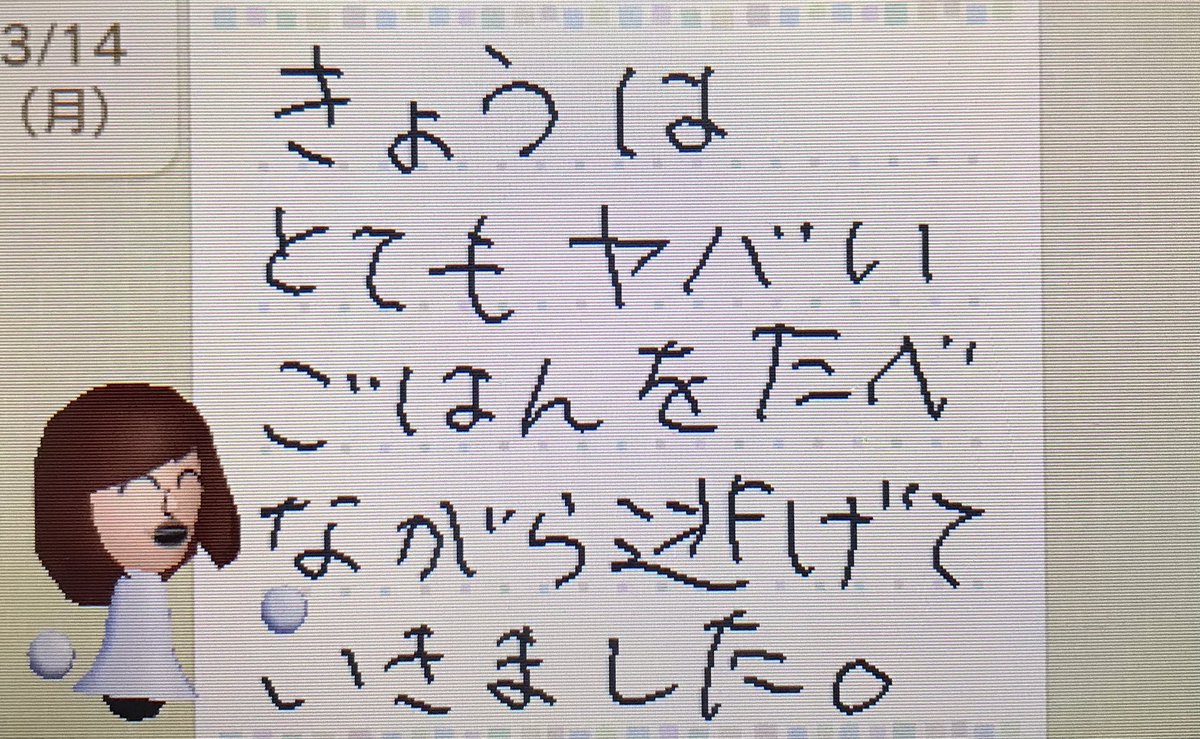 3/14
(月)
きょうは
とてもヤバい
ごはんをたべ
ながら逃げて
いきました。